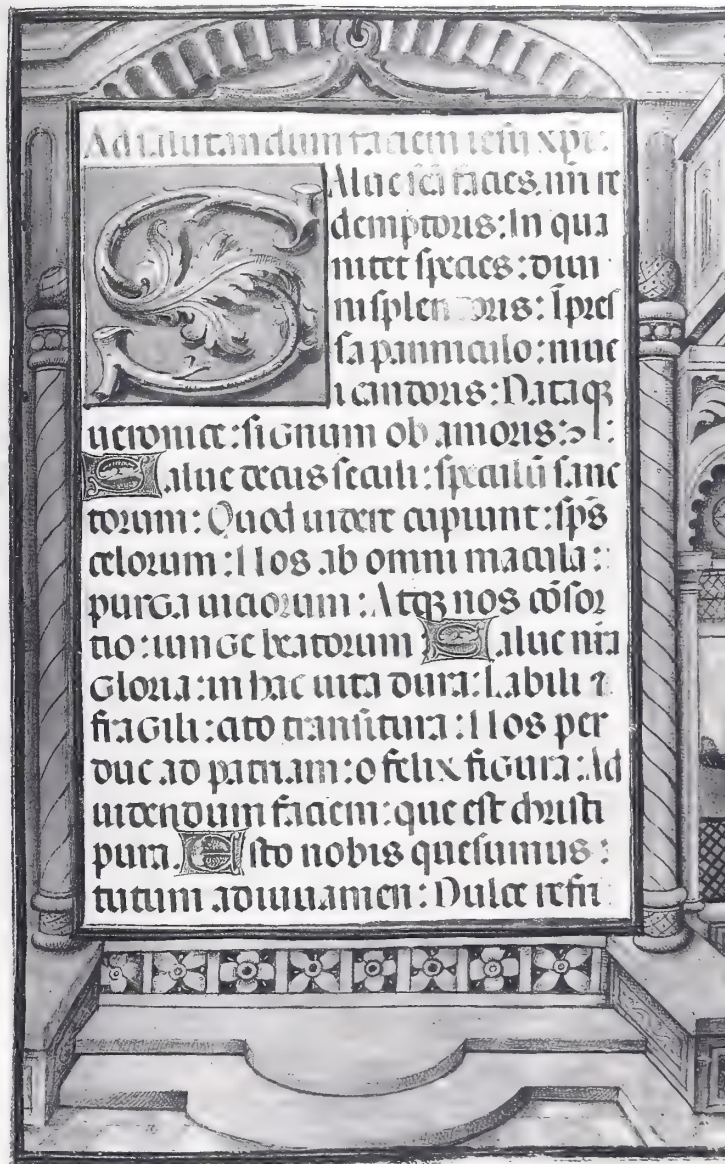 Ad salutandum faciem iesu xpi:
Salue scā facies. nri re
demptoris: In qua
nitet species: diui
ni splendoris: Īpres
sa panniculo: niue
i candoris: Dataqꝫ
ueronice: signum ob amoris: ꝛ:
Salue decus seculi: speculū sanc
torum: Quod uidere cupiunt: sps̄
celorum: Nos ab omni macula:
purga uiciorum: Atqꝫ nos cōsor
tio: iunge beatorum Salue nr̄a
gloria: in hac uita dura: Labili ⁊
fragili: cito transitura: Nos per
duc ad patriam: o felix figura: Ad
uidendum faciem: que est christi
pura. Esto nobis quesumus:
tutum adiuuamen: Dulce refri